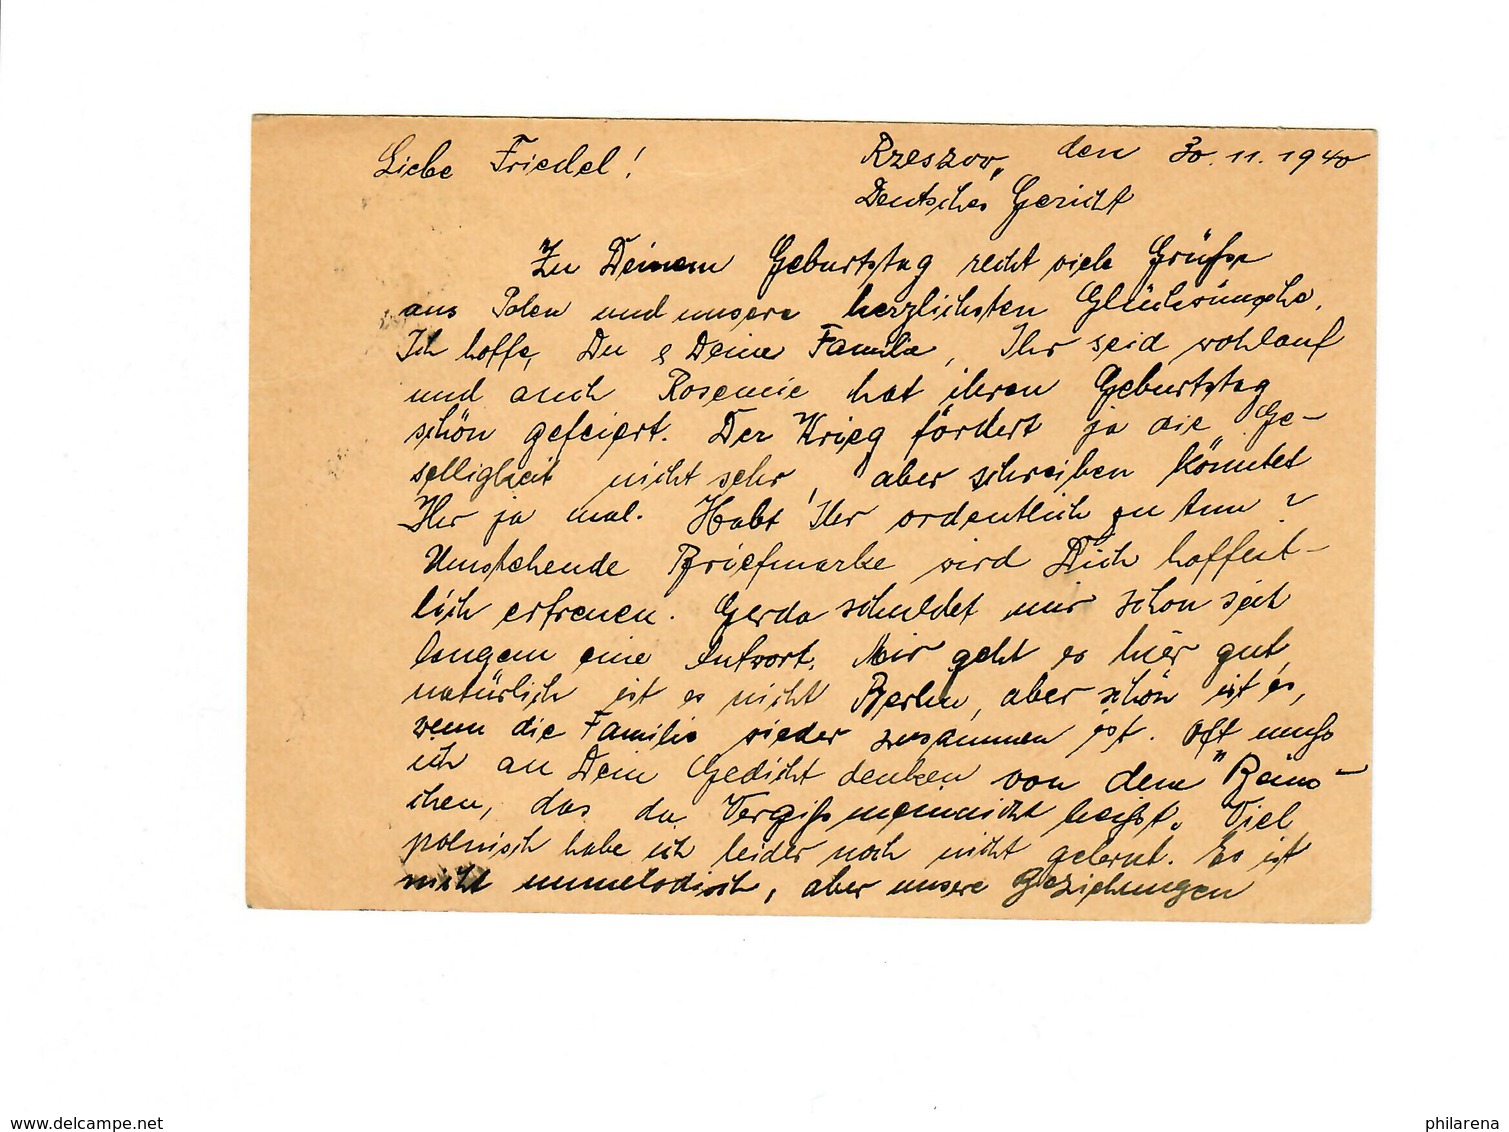 Liebe Friedel! Rzeszow, den 30.11.1940
Deutsches Gericht
Zu Deinem Geburtstag recht viele Grüße
aus Polen und unsere herzlichsten Glückwünsche.
Ich hoffe, Du & Deine Familie, Ihr seid wohlauf
und auch Rosemie hat ihren Geburtstag
schön gefeiert. Der Krieg fördert ja die Ge-
selligkeit nicht sehr, aber schreiben könntet
Ihr ja mal. Habt Ihr ordentlich zu tun?
Umstehende Briefmarke wird Dich hoffent-
lich erfreuen. Gerda schuldet mir schon seit
langem eine Antwort. Mir geht es hier gut,
natürlich ist es nicht Berlin, aber schön ist es,
wenn die Familie wieder zusammen ist. Oft muß
ich an Dein Gedicht denken von dem "Bäum-
chen, das da Vergißmeinnicht heißt". Viel
polnisch habe ich leider noch nicht gelernt. Es ist
nicht unmelodisch, aber unsere Beziehungen
www.delcampe.net
philarena